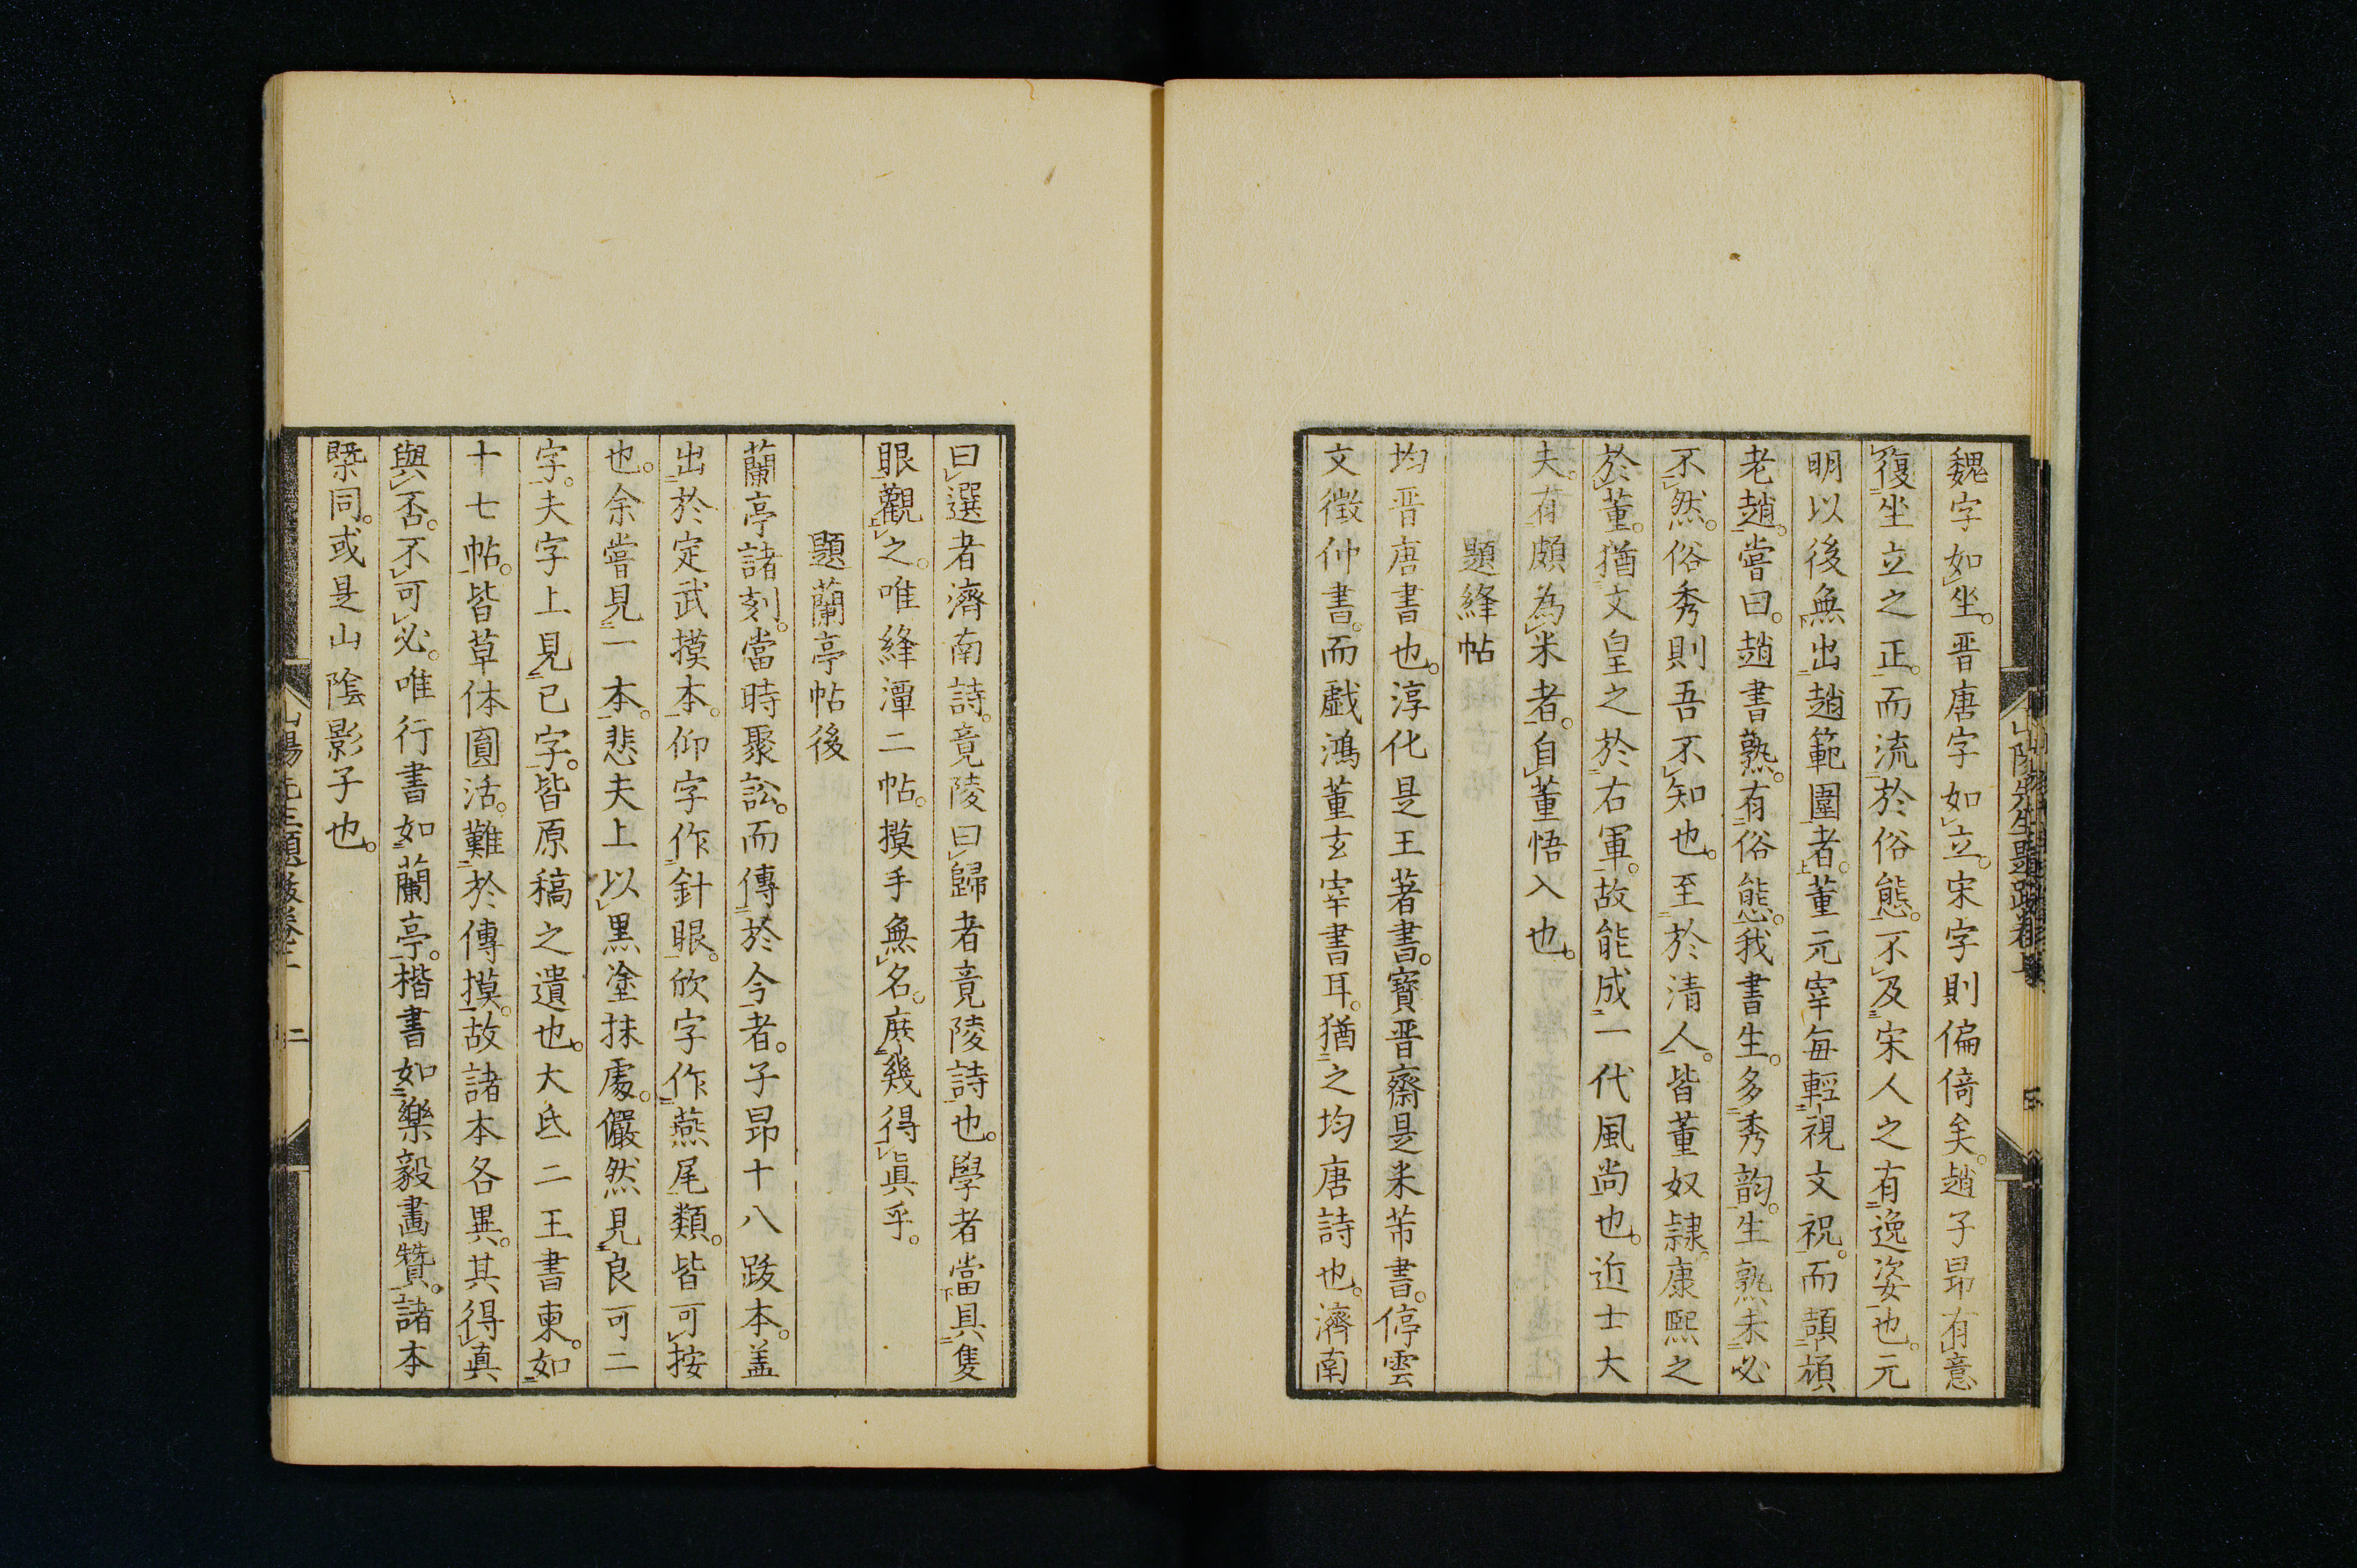 魏字如坐。晋唐字如立。宋字則偏倚矣。趙子昂有意
復坐立之正。而流於俗態。不及宋人之有逸姿也。元
明以後無出趙範圍者。董元宰毎輕視文祝。而頡頏
老趙。嘗曰。趙書熟。有俗態。我書生。多秀韵。生熟未必
不然。俗秀則吾不知也。至於清人。皆董奴隷。康熙之
於董。猶文皇之於右軍。故能成一代風尚也。近士大
夫。有頗為米者。自董悟入也。
題絳帖
均晋唐書也。淳化是王著書。寶晋齋是米芾書。停雲
文徴仲書。而戯鴻董玄宰書耳。猶之均唐詩也。濟南
曰選者濟南詩。竟陵曰歸者竟陵詩也。學者當具隻
眼觀之。唯絳潭二帖。摸手無名。庶幾得眞乎。
題蘭亭帖後
蘭亭諸刻。當時聚訟。而傳於今者。子昂十八跋本。盖
出於定武摸本。仰字作針眼。欣字作燕尾類。皆可按
也。余嘗見一本。悲夫上以黒塗抹處。儼然見良可二
字。夫字上見已字。皆原稿之遺也。大氐二王書東。如
十七帖。皆草体圓活。難於傳摸。故諸本各異。其得眞
與否。不可必。唯行書如蘭亭。楷書如樂毅畵贊。諸本
槩同。或是山陰影子也。
山陽先生題跋卷上
二